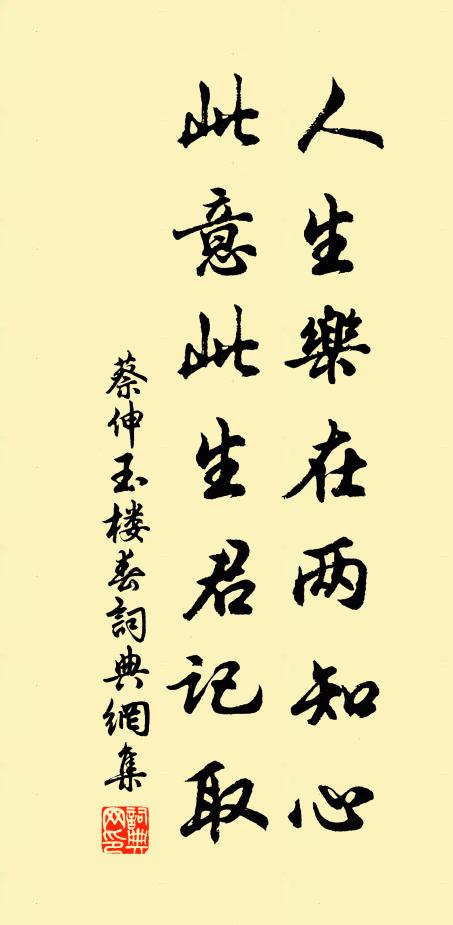 人生樂在两知心
此意此生君记取
蔡伸玉楼春詞典網集
詞典网印